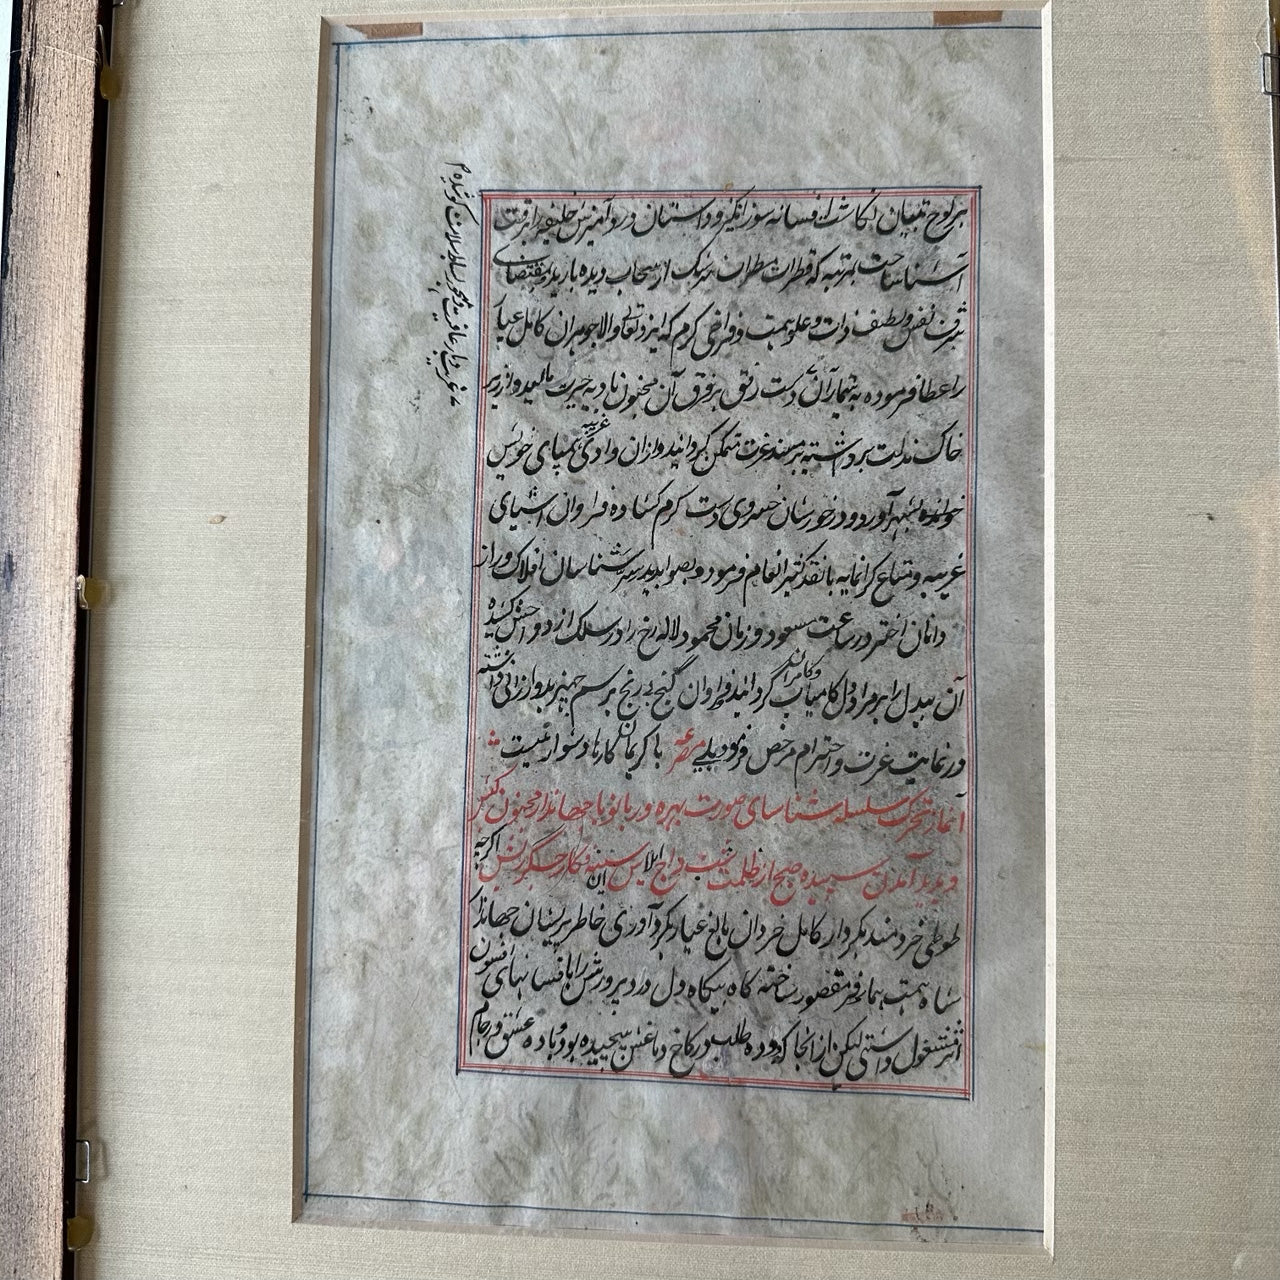 بر لوح تبیان نگاشت از فسانه سوز انگیز و داستان درد آمیزش خلیفه را رقت
آشنا ساخت بمرتبه که قطرات مطران سرشک از سحاب دیده بارید بمقتضای
شرف نفس و لطف ذات و علو همت و فراخی کرم که ایزد تعالی والا جوهران کامل عیار
را عطا فرموده به تیمار آن دست رفق بر فرق آن مجنون بادیه حیرت مالید و از زیر
خاک مذلت برداشته بر مسند عزت متمکن گردانید و از ان وادی غریبه همپای خویش
بشهر آورد و در خور شان خسروی دست کرم کشاده فراوان اشیای
غریبه و متاع گرانمایه با نقد کثیر انعام فرمود و بصوابدید شناسان افلاک و راز
دانان اختر در ساعت مسعود و زمان محمود لاله رخ را در سلک ازدواجش کشیده
آن بیدل را بر مراد دل کامیاب و کامران گردانید و فراوان گنج بی رنج برسم جهیز بدو ارزانی داشته
در نهایت عزت و احترام مرخص فرمود بلی مصرعه با کریمان کارها دشوار نیست
آغاز تحریک سلسله شناسای صورت بهره ور بانو با جهاندار مجنون کیش
و پدید آمدن سپیده صبح از ظلمت شب داج ان سینه فکار جگر ریش اگرچه
طوطی خردمند بکردار کامل خردان بالغ عیار بگردآوری خاطر پریشان جهاندار
شاه همت مقصور ساخته گاه بیگاه دل درد پرورش را با فسانهای افسون
اثر مشغول داشتی لیکن از آنجا که طلب در کاخ دماغش پیچیده بود و باده عشق در جام
غربت دیار عافیت بساط سلامت گردیده